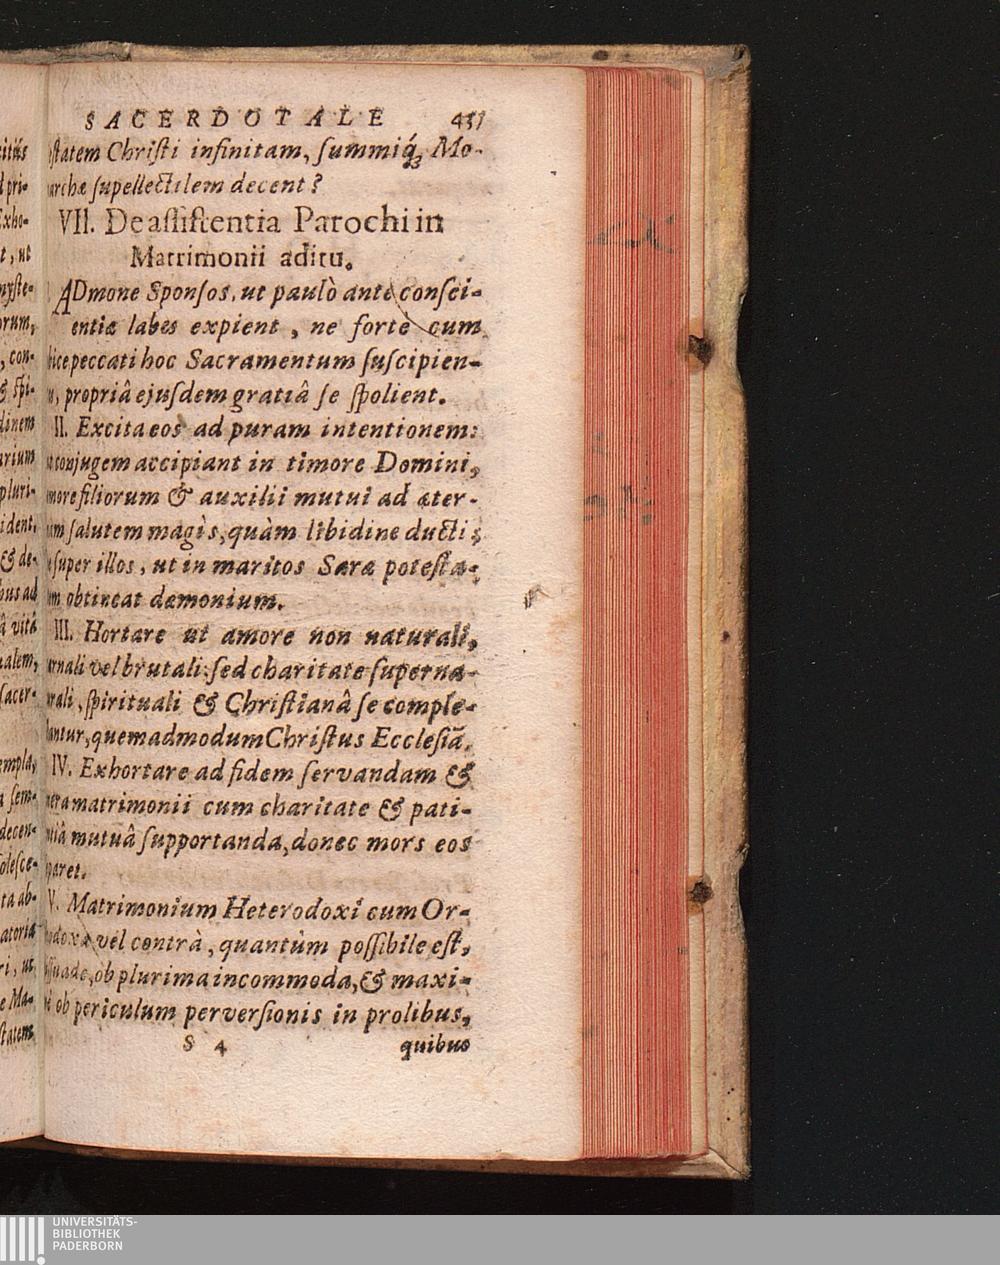 SACERDOTALE
statem Christi infinitam, summiq́; Mo-
archæ supellectilem decent?
VII. De assistentia Parochi in
Matrimonii aditu.
ADmone Sponsos, ut paulò ante consci-
entiæ labes expient, ne forte cum
ice peccati hoc Sacramentum suscipien-
propriâ ejusdem gratiâ se spolient.
II. Excita eos ad puram intentionem:
conjugem accipiant in timore Domini,
more filiorum & auxilii mutui ad æter-
um salutem magìs, quàm libidine ducti;
super illos, ut in maritos Saræ potesta-
m obtineat dæmonium.
III. Hortare ut amore non naturali,
arnali vel brutali: sed charitate superna-
rali, spirituali & Christianâ se comple-
antur, quemadmodum Christus Ecclesiã.
IV. Exhortare ad fidem servandam &
nera matrimonii cum charitate & pati-
tiâ mutuâ supportanda, donec mors eos
paret.
V. Matrimonium Heterodoxi cum Or-
odoxa vel contrà, quantùm possibile est,
ssuade, ob plurima incommoda, & maxi-
è ob periculum perversionis in prolibus,
S 4 quibus
UNIVERSITÄTS-
BIBLIOTHEK
PADERBORN